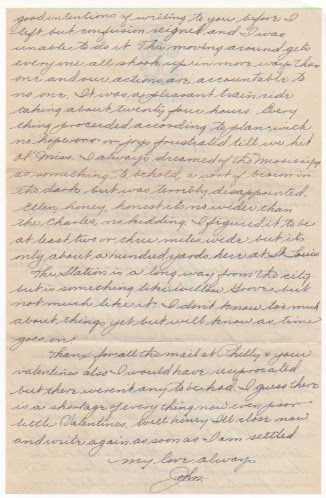 good intentions of writing to you before I
left but confusion reigned and I was
unable to do it. This moving around gets
everyone all shook up in more ways than
one and our actions are accountable to
no one. It was a pleasant train ride
taking about twenty four hours. Every
thing proceeded according to plan with
no hopes or joys frustrated till we hit
ol' Miss. I always dreamed of the Mississippi
as something to behold, a sort of beacon in
the dark but was terribly disappointed.
Ellen, honey, honest its no wider than
the Charles, no kidding. I figured it to be
at least two or three miles wide but its
only about a hundred yards here at St. Louis
The Station is a long way from the city
but is something like the Grove but
not much like it. I don't know too much
about things yet but will know as time
goes on.
Thanx for all the mail at Philly & your
valentines also. I would have reciprocated
but there weren't any to be had. I guess there
is a shortage of everything now even poor
little Valentines. Well honey Ill close now
and write again as soon as I am settled
my love always
John.